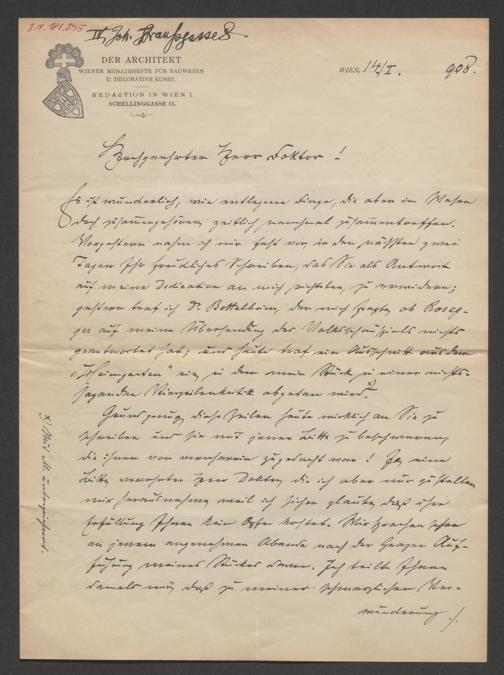 J.N. 141.595
IV, Joh. Straußgasse 8
DER ARCHITEKT
WIENER MONATSHEFTE FÜR BAUWESEN
U. DECORATIVE KUNST.
REDACTION IN WIEN I
SCHELLINGGASSE 13.
WIEN, 14/I. 908.
Hochgeehrter Herr Doktor!
Es ist wunderlich, wie entlegene Dinge, die aber im Wesen
doch zusammengehören, zeitlich manchmal zusammentreffen.
Vorgestern nahm ich mir fest vor, in den nächsten zwei
Tagen Ihr freundliches Schreiben, das Sie als Antwort
auf meine Dedication an mich richteten, zu erwidern;
gestern traf ich Dr. Bettelheim, der mich fragte, ob Roseg-
ger auf meine Übersendung des Volksschauspiels nichts
geantwortet hab; und heute traf ein Ausschnitt aus dem
"Heimgarten" ein, in dem mein Stück zu einer nichts-
sagenden Vierzeilenkritik abgetan wird. x)
Grund genug, diese Zeilen heute wirklich an Sie zu
schreiben und sie mit jener Bitte zu beschweren,
die ihnen von vornherein zugedacht war! Ja, eine
Bitte, verehrter Herr Doktor, die ich aber nur zu stellen
mir herausnehme, weil ich sicher glaube, daß ihre
Erfüllung Ihnen kein Opfer kostet. Wir sprachen schon
an jenem angenehmen Abende nach der Grazer Auf-
führung meines Stückes davon. Ich teilte Ihnen
damals mit, daß zu meiner schmerzlichen Ver-
wunderung ./.
x) Mit M. unterzeichnet.